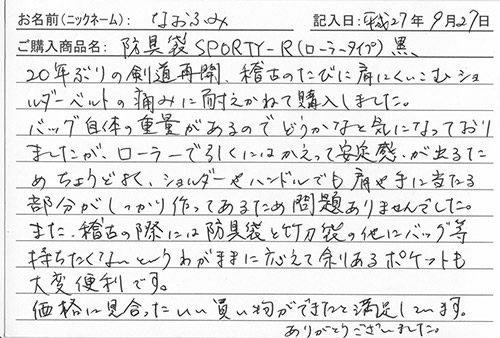 お名前(ニックネーム): なおふみ 記入日:平成27年 9月27日
ご購入商品名: 防具袋SPORTY-R(ローラータイプ)黒、
20年ぶりの剣道再開、稽古のたびに肩にくいこむショ
ルダーベルトの痛みに耐えかねて購入しました。
バッグ自体の重量があるのでどうかなと気になっており
ましたが、ローラーで引くにはかえって安定感が出るた
めちょうどよく、ショルダーやハンドルでも肩や手に当たる
部分がしっかり作ってあるため問題ありませんでした。
また、稽古の際には防具袋と竹刀袋の他にバッグ等
持ちたくないというわがままに応えて余りあるポケットも
大変便利です。
価格に見合ったいい買い物ができたと満足しています。
ありがとうございました。